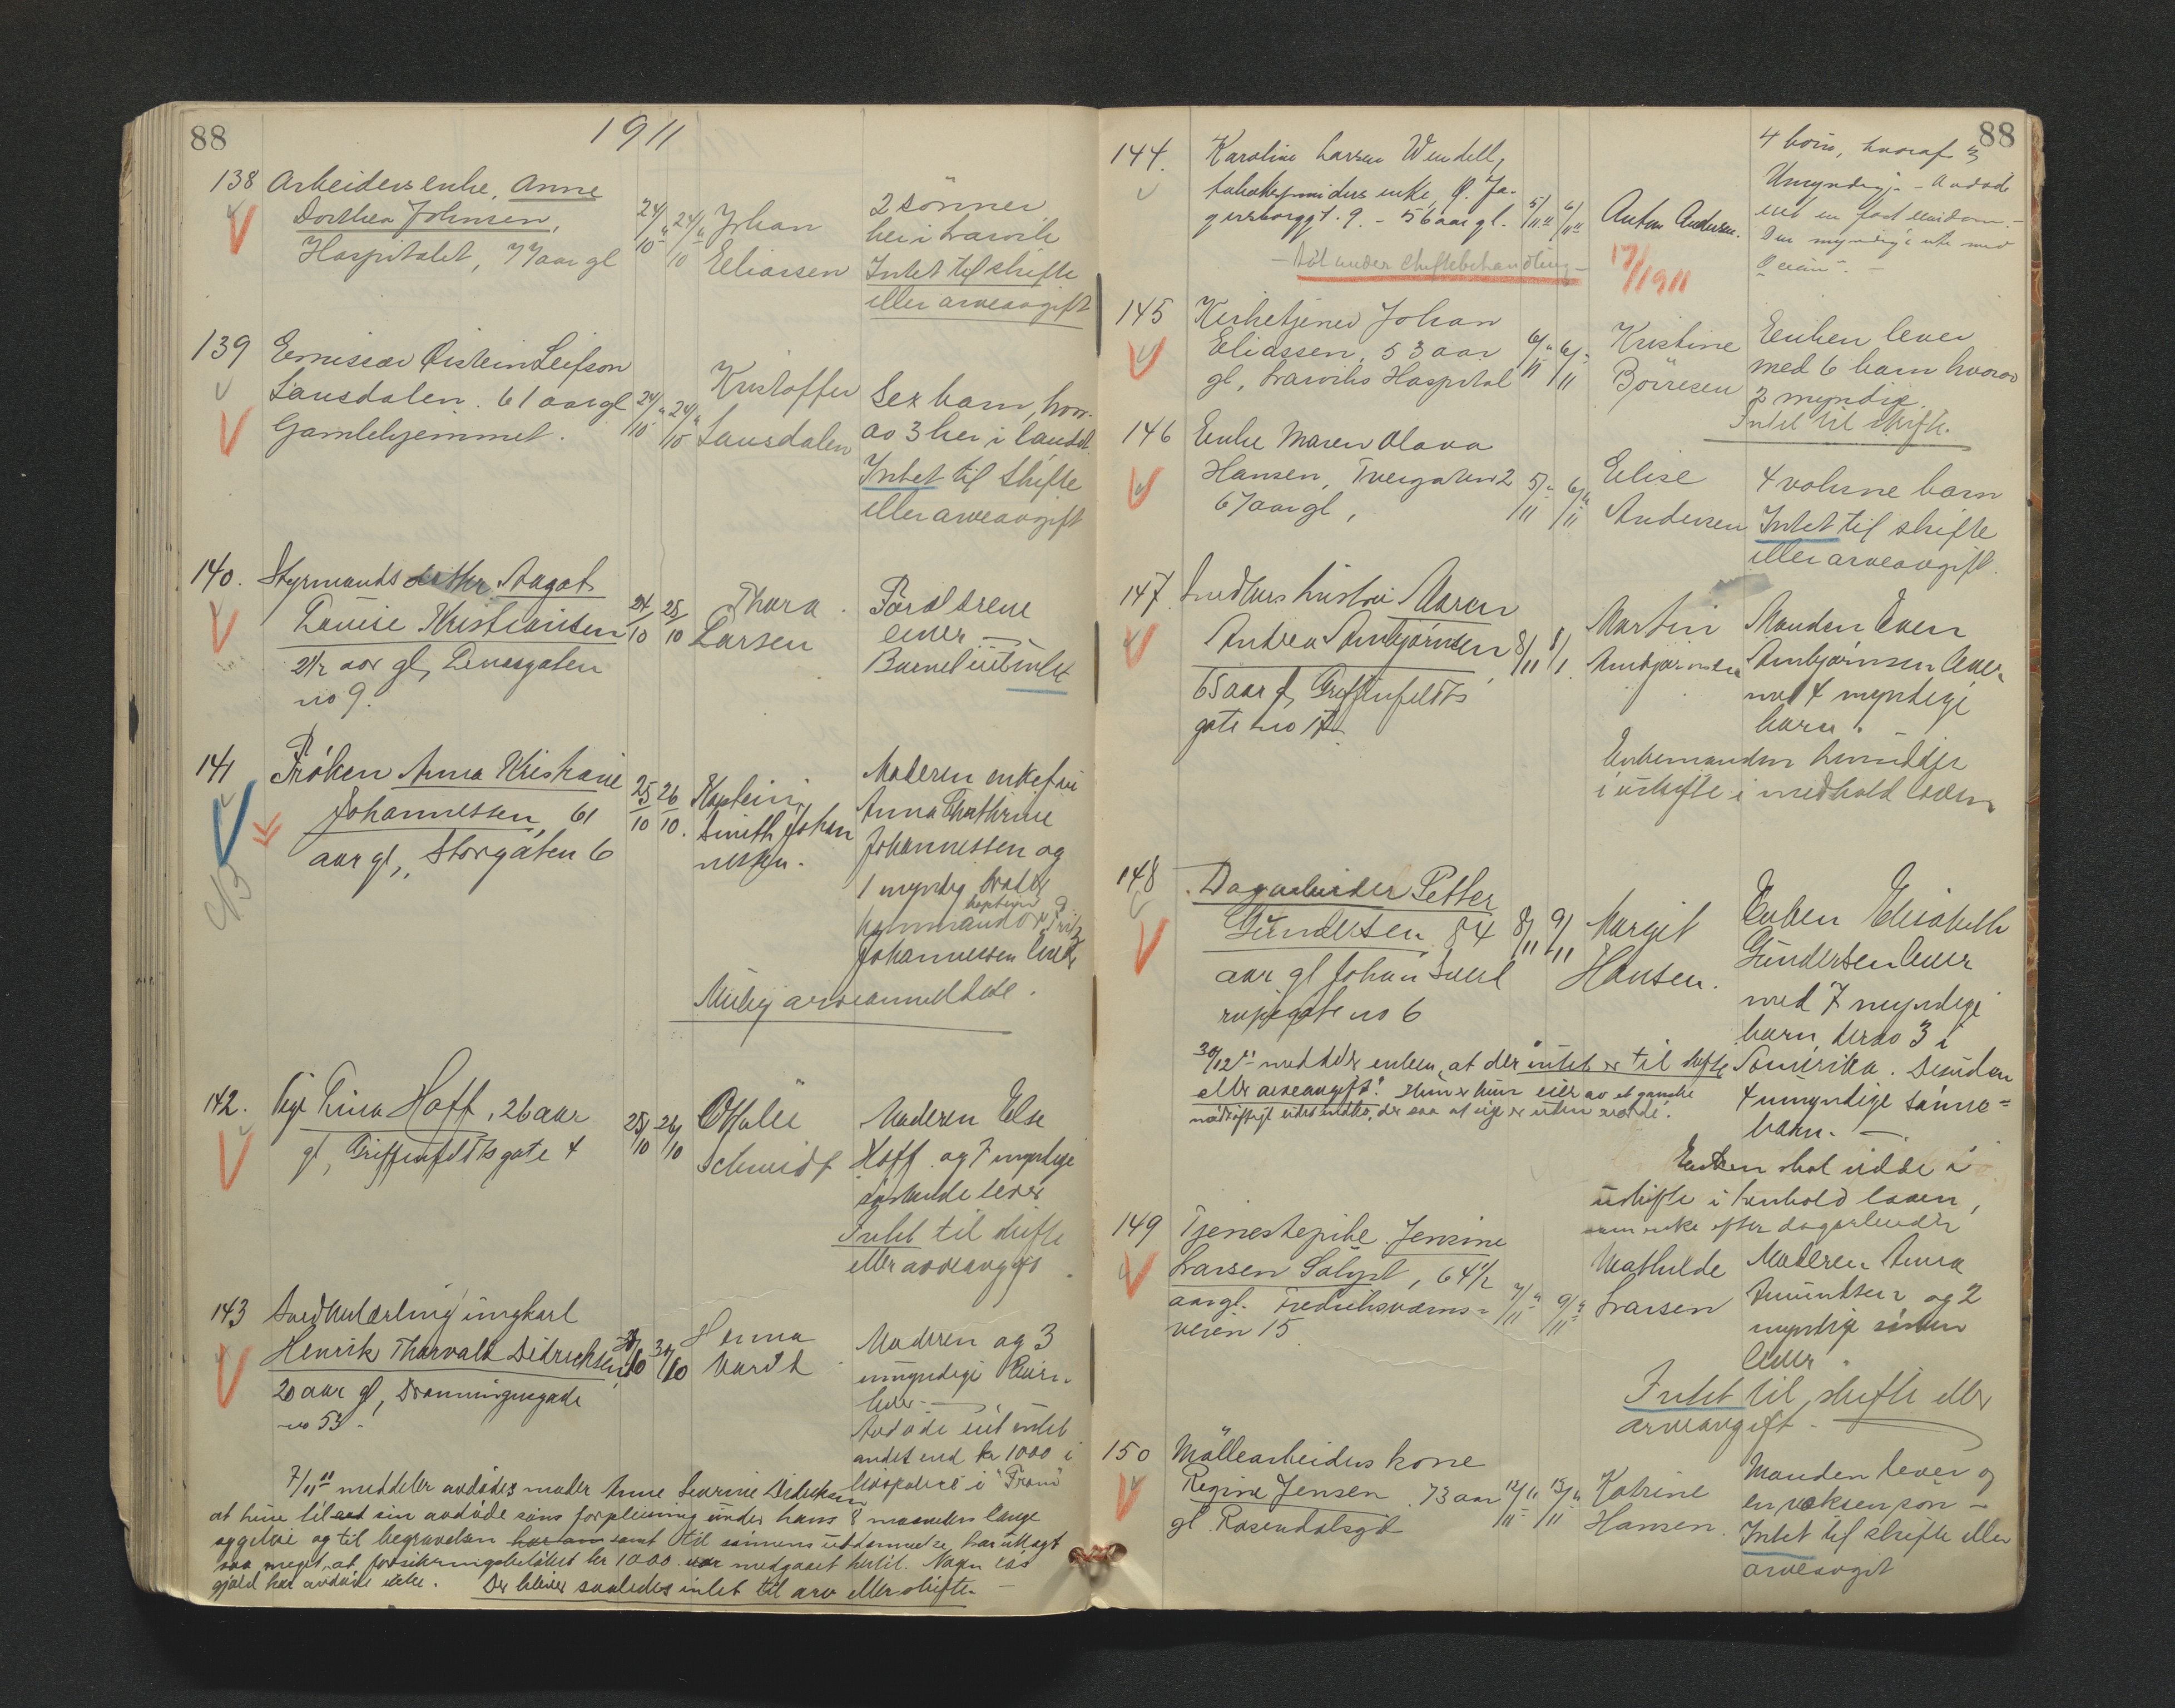 88
1911
138 Arbeiders enke, Anne
Dorthea Johnsen,
Hospitalet, 77 aar gl
24/10 24/10
Johan
Eliassen
2 sönner
her i Larvik
Intet til skifte
eller arveavgift
139 Emissær Øistein Leifson
Lausdalen. 61 aar gl
Gamlehjemmet.
24/10 24/10
Kristoffer
Lausdalen
Sex barn, hvor-
av 3 her i landet
Intet til skifte
eller arveavgift
140. Styrmands datter Aagot
Louise Kristiansen
2 1/2 aar gl,
no 9.
24/10 25/10
Thora
Larsen
Forældrene
lever
Barnet intet
141 Frøken Anna Kristiane
Johannessen, 61
aar gl,, Storgaten 6
25/10 26/10.
Kaptein
Smith Johan
nessen.
Moderen enkefru
Anna Chathrine
Johannessen og
1 myndig broder
kaptein
Johannessen lever
Mulig arveanmeldelse.
142. Pige Tina Hoff, 26 aar
gl, Griffenfeldtsgate 4
25/10 26/10
Othalie
Schmidt
Moderen Else
Hoff og 7 myndige
søskende lever
Intet til skifte
eller arveavgift
143 Snedkerlærling ungkarl
Henrik Thorvald Didrichsen,
20 aar gl, Dronningensgade
no 53.
30/10
Henna
Vardt
Moderen og 3
umyndige
lever
Avdøde eiet intet
andet end kr 1000 i
livspolice i "Fram"
7/11 11 meddeler avdødes moder Anne Severine Didriksen
at hun til sin avdøde søns forpleining under hans 8 maaneders lange
sygeleie og til begravelsen samt til sønnens uddannelse, har utlagt
saa meget, at forsikringsbeløbet kr 1000 var medgaaet hertil. Nogen løs
gjæld har avdøde ikke. Der bliver saaledes intet til arv eller skifte.
88
144. Karoline Larsen Wendell,
enke, Ø. Ja-
gersborggt. 9. - 56 aar gl.
5/11 6/11
Anton Andersen.
4 börn, hvoraf 3
Umyndige. - Avdøde
eiet en fast eiendom. -
- Tat under skiftebehandling -
17/1911
145 Kirketjener Johan
Eliassen, 53 aar
gl, Larviks Hospital
6/11 6/11
Kristine
Börresen
Enken lever
med 6 barn hvorav
2 myndig.
Intet til skifte.
146 Enke Maren Olava
Hansen, Tvergaten 2
67 aar gl,
5/11 6/11
Elise
Andersen
4 voksne barn
Intet til skifte
eller arveavgift.
147. Snedkers hustru Maren
Andrea Arnbjørnsen,
65 aar gl, Griffenfeldts
gate no 12
8/11
Martin
Arnbjørnsen
Manden Even
Arnbjørnsen lever
med 4 myndige
barn.
Enkemanden hensidder
i uskifte i medhold loven
148. Dagarbeider Petter
Gundersen 84
aar gl Johan Sverd
rupsgate no 6
8/11 9/11
Margit
Hansen.
Enken Elisabeth
Gundersen lever
med 7 myndige
barn, derav 3 i
Amerika. Desuden
4 umyndige sønne-
barn.
30/12 11 meddeler enken, at der intet er til skifte
eller arveavgift. Hun eier av et ganske
nødtørftigt indbo, der saa at sige er uten værdi.
Enken skal sidde i
uskifte i henhold loven,
som enke efter dagarbeider
149 Tjenestepike Jensine
Larsen, 64 1/2
aar gl. Fredriksværns-
veien 15
7/11 9/11
Mathilde
Larsen
Moderen Anna
Amundsen og 2
myndige
lever.
Intet til skifte eller
arveavgift.
150 Möllearbeiders kone
Regine Jensen. 73 aar
gl. Rosendalsgt
12/11 13/11
Katrine
Hansen.
Manden lever og
en voksen søn -
Intet til skifte eller
arveavgit